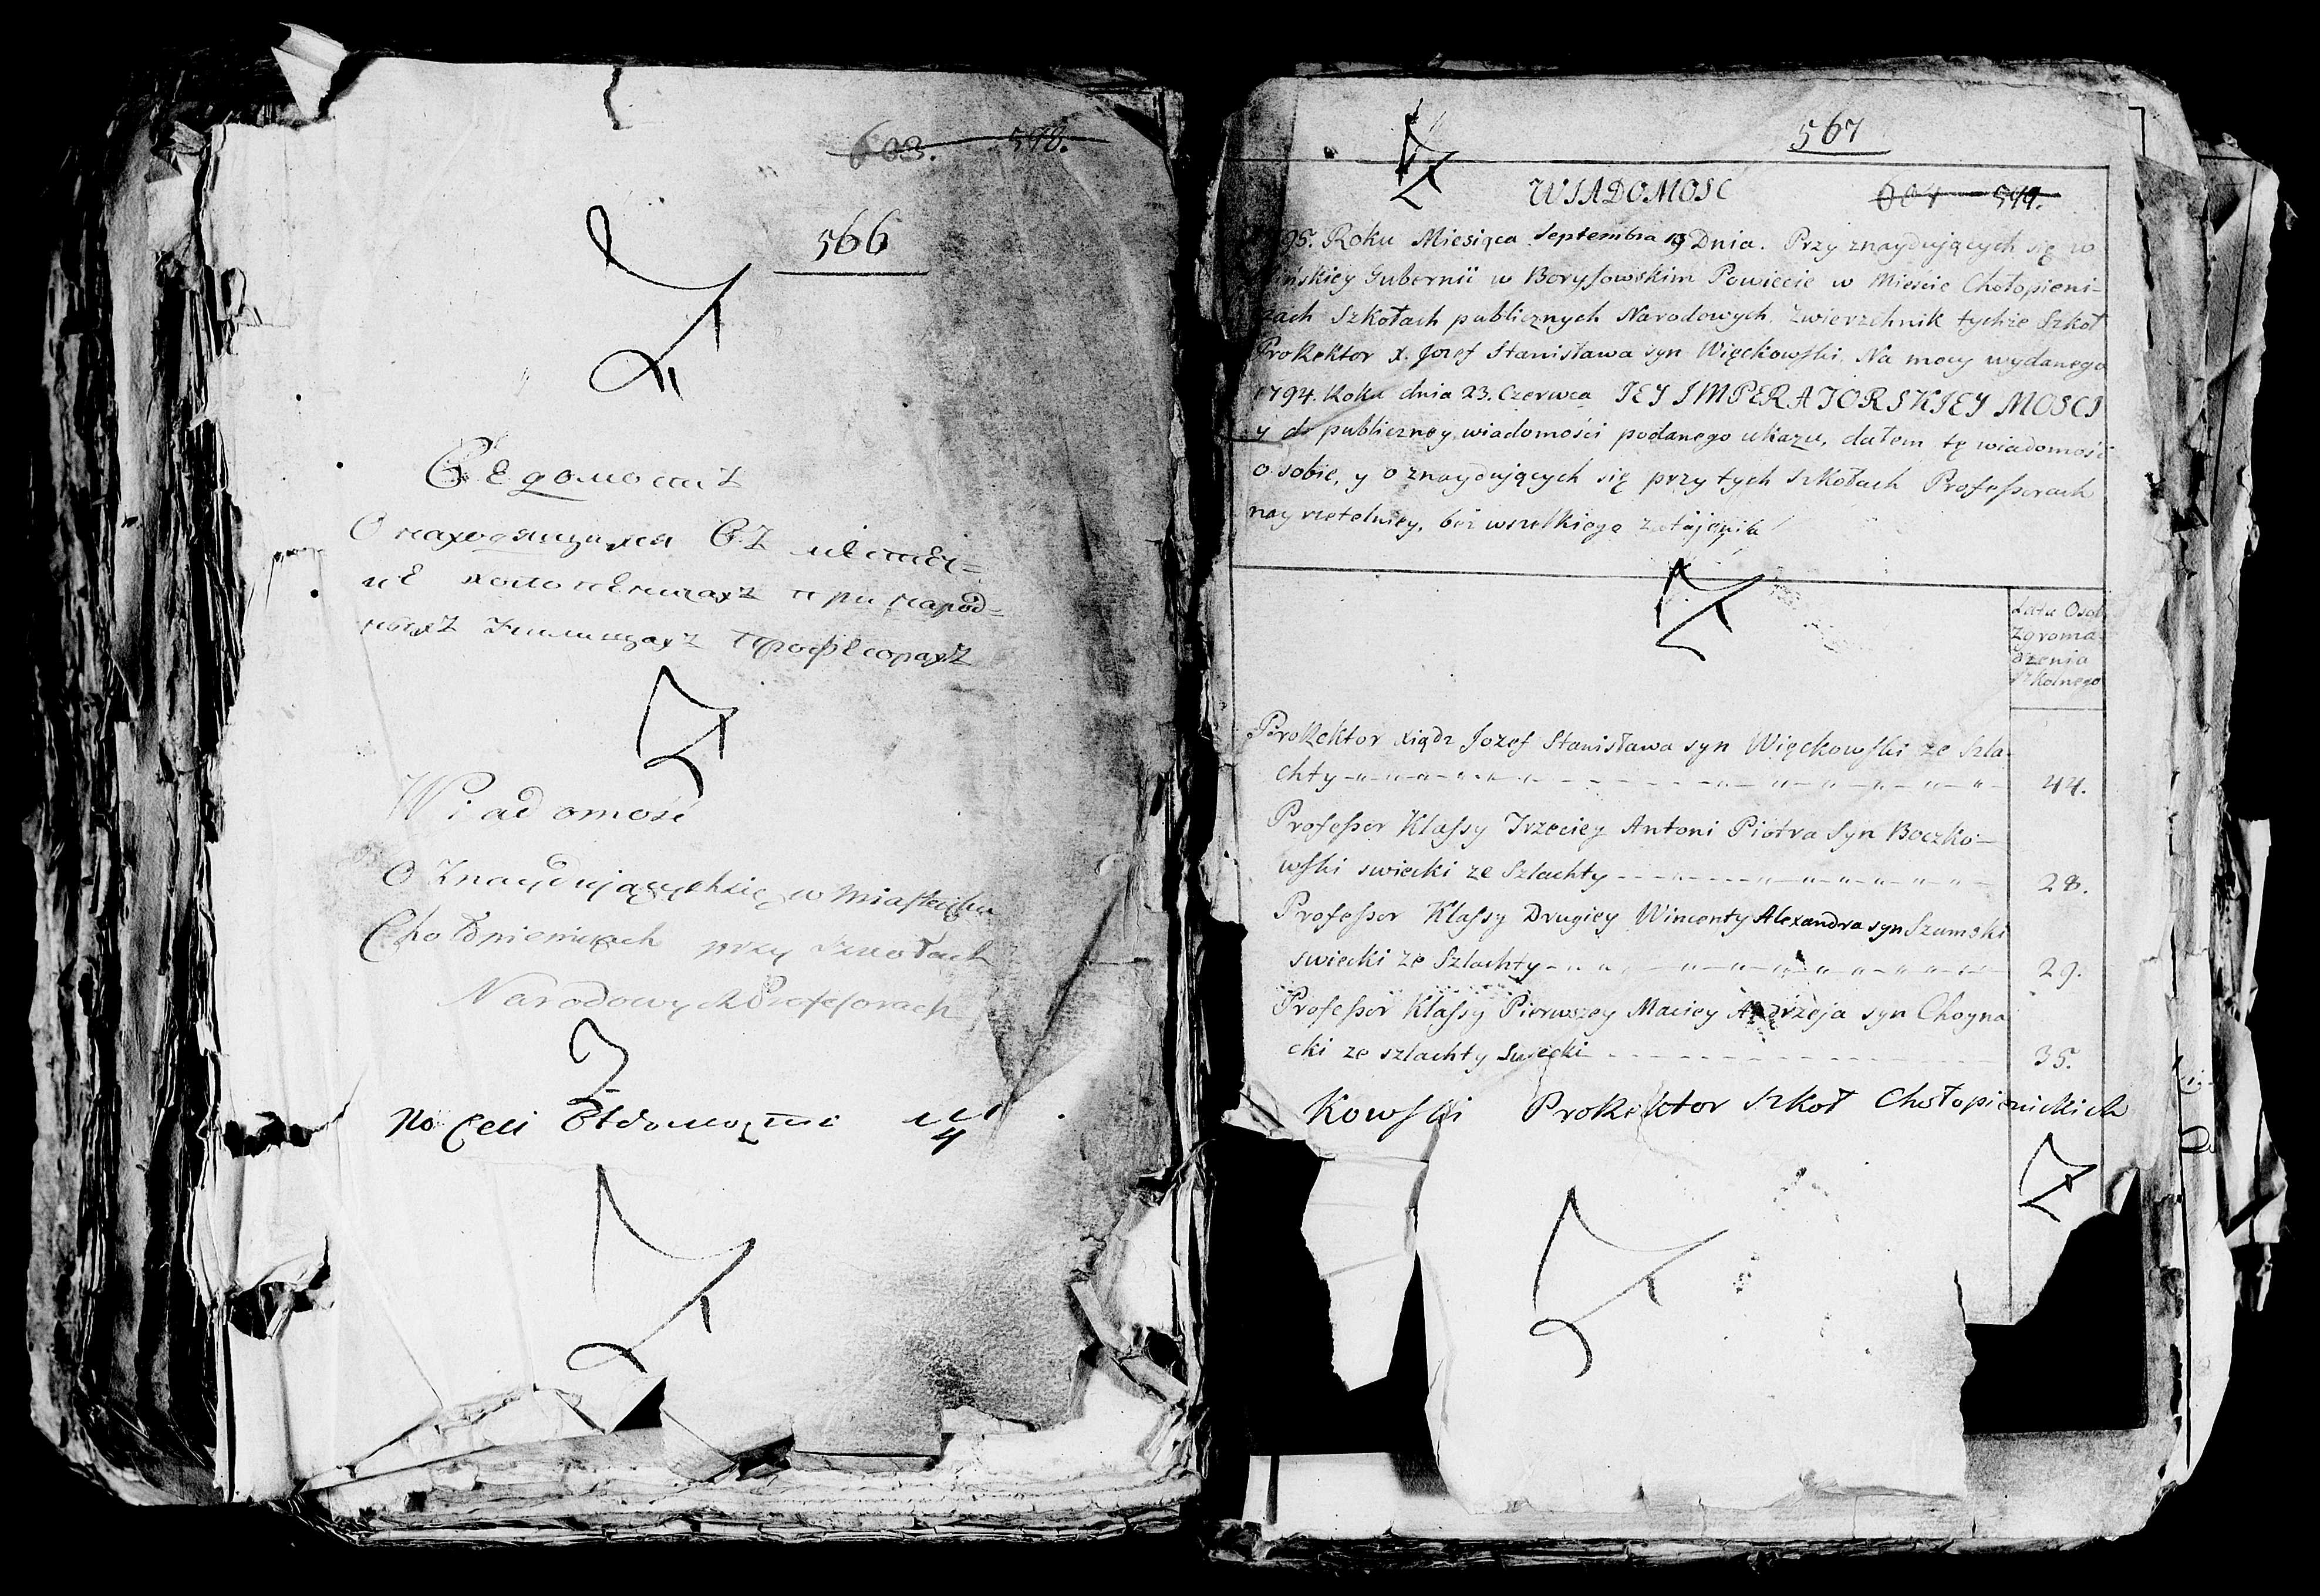 603. 598.
566
Ведомость
О находящихся Въ местеч=
не холопеничахъ при народ=
ныхъ училищахъ профессорахъ
Wiadomość
O Znaydujących się w Miasteczku
Chołopieniczach przy Szkołach
Narodowych Professorach
По сей Ведомости м 4
567
WIADOMOSC
604 599.
95. Roku Miesiąca Septembra 19 Dnia. Przy znaydujących się w
ińskiey Gubernii w Borysowskim Powiecie w Mieście Chołopieni-
zach Szkołach publicznych Narodowych. Zwierzchnik tychże Szkół
ProRektor X. Jozef Stanisława syn Więckowski. Na mocy wydanego
1794. Roku dnia 23. Czerwca JEY IMPERATORSKIEY MOSCI
y do publiczney wiadomości podanego ukazu, dałem tę wiadomość
o sobie, y o znaydujących się przy tych szkołach Professorach
nay rzetelniey, bez wszelkiego zatajenia
Lata Osob
Zgroma-
dzenia
szkolnego
ProRektor Xiądz Jozef Stanisława syn Więckowski ze Szla-
chty 44.
Professor Klassy Trzeciey Antoni Piotra Syn Boczko-
wski swiecki ze Szlachty 28.
Professor Klassy Drugiey Wincenty Alexandra syn Szumski
swiecki ze Szlachty 29.
Professor Klassy Pierwszey Maciey Andrzeja syn Choyna
cki ze szlachty swiecki 35.
kowski ProRektor Szkoł Chołopienickich